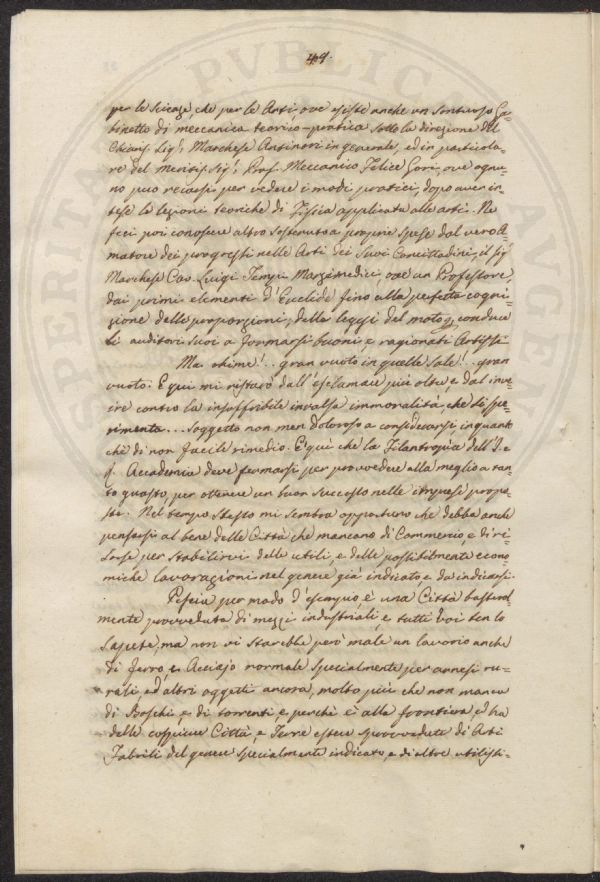 49.
per le Scienze, che per le Arti, ove esiste anche un sontuoso Ga=
binetto di meccanica teorico-pratica sotto la direzione del
Chiaris. Sig.r Marchese Antinori in generale, ed in particola=
re del meritiss. Sig.r Prof. Meccanico Felice Gori, ove ognu=
no può recarsi per vedere i modi pratici, dopo aver in=
tese le lezioni teoriche di Fisica applicata alle arti. Ne
feci poi conoscere altro sostenuto a proprie spese dal vero A=
matore dei progressi nelle Arti dei Suoi Concittadini, il Sig.r
Marchese Cav. Luigi Tempi Marzimedici, ove un Professore,
dai primi elementi d'Euclide fino alla perfetta cogni=
zione delle proporzioni, delle leggi del moto, conduce
li auditori suoi a formarsi buoni e ragionati Artisti.
Ma ohime!.. gran vuoto in quelle Sale!.. gran
vuoto. E qui mi ristarò dall'esclamare più oltre e dal inve=
ire contro la insoffribile invalsa immoralità, che si spe=
rimenta... Soggetto non men doloroso a considerarsi, inquanto
chè di non facile rimedio. E quì che la Filantropia dell'I. e
R. Accademia deve fermarsi per provvedere alla meglio a tan=
to guasto, per ottenere un buon successo nelle imprese propo=
ste. Nel tempo stesso mi sembra opportuno che debba anche
pensarsi al bene delle Città che mancano di Commercio, e di ri=
sorse per stabilirvi delle utili, e delle possibilmente econo=
miche lavorazioni nel genere già indicato, e da indicarsi.
Pescia per modo d'esempio è una Città bastevol=
mente provveduta di mezzi industriali, e tutti Voi ben lo
Sapete, ma non vi starebbe però male un lavorio anche
di ferro, e Acciajo normale specialmente per arnesi ru=
rali, ed altri oggetti ancora, molto più che non manca
di Boschi, e di torrenti, e perchè è alla frontiera, ed ha
delle cospicue Città, e Terre estere sprovvedute di Arti
Fabrili del genere specialmente indicato, e di altre utilissi=